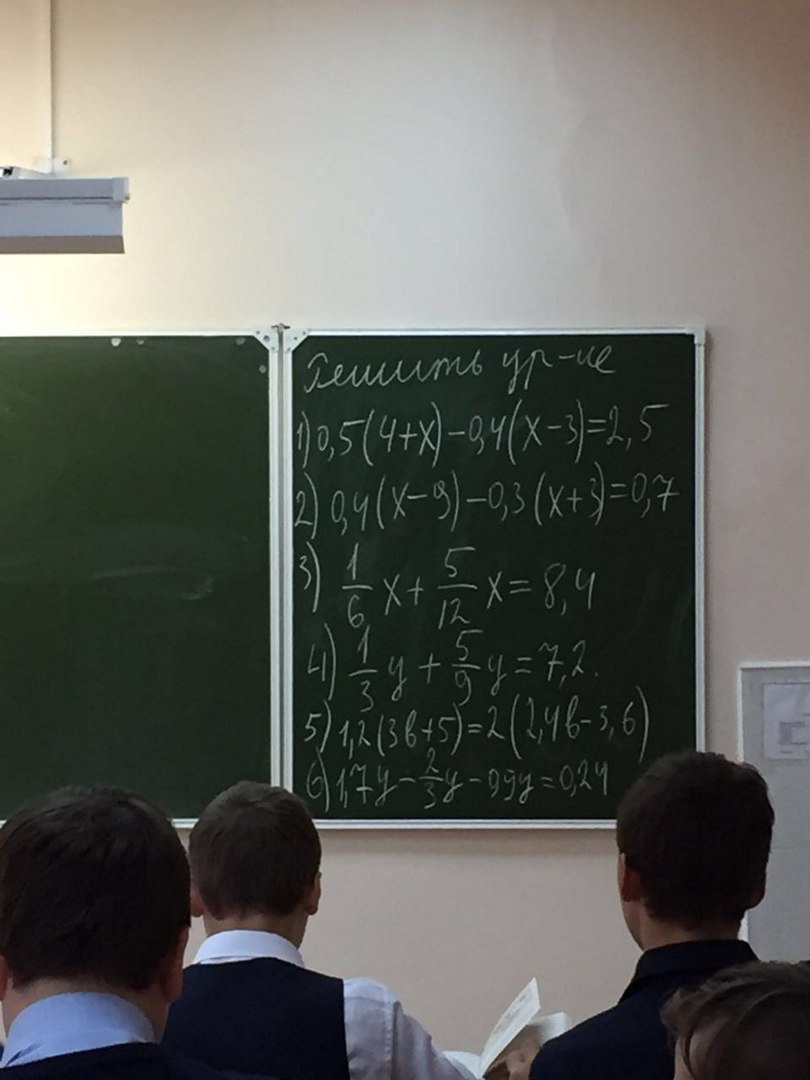 Решить ур-ие
1) 0,5(4+x)-0,4(x-3)=2,5
2) 0,4(x-9)-0,3(x+3)=0,7
3) 1/6 x + 5/12 x = 8,4
4) 1/3 y + 5/9 y = 7,2.
5) 1,2(3в+5)=2(2,4в-3,6)
6) 1,7y - 2/3 y - 0,9y = 0,24